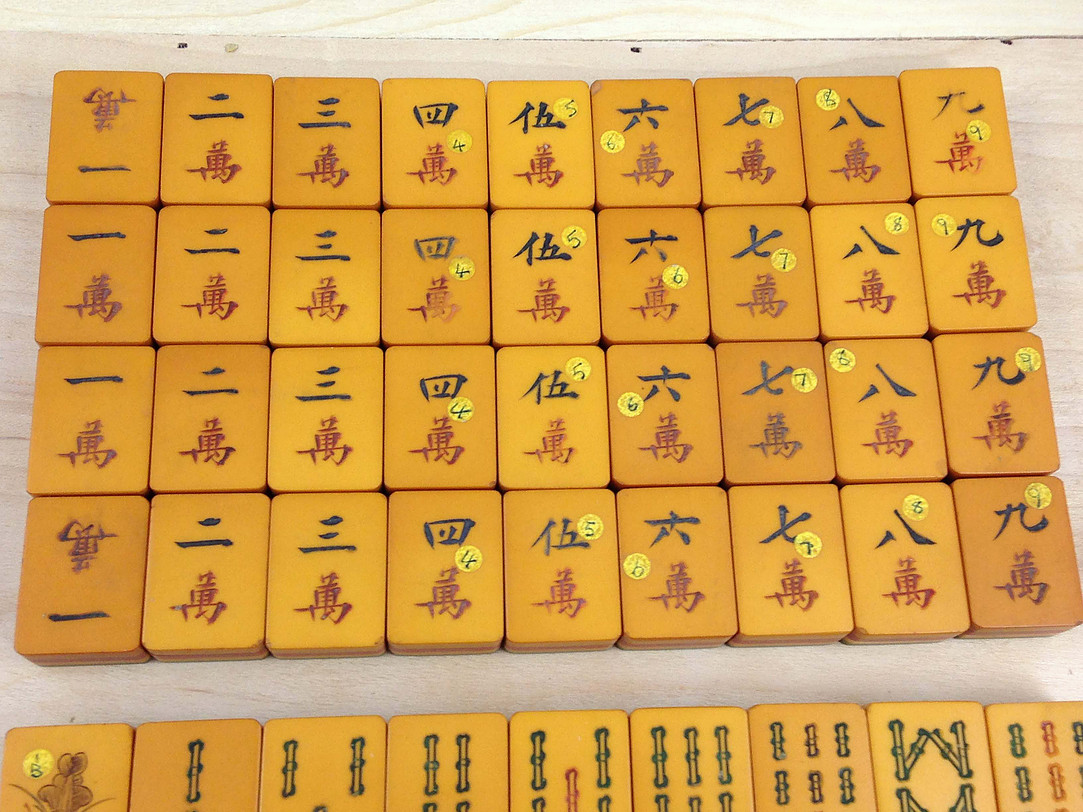 一 二 三 四 伍 5 六 七 7 8 八 九
萬 萬 萬 4 萬 萬 6 萬 萬 萬 9 萬
一 二 三 四 伍 5 六 七 八 8 9 九
萬 萬 萬 4 萬 萬 6 萬 7 萬 萬 萬
一 二 三 四 伍 5 六 七 7 8 八 九 9
萬 萬 萬 4 萬 萬 6 萬 萬 萬 萬
一 二 三 四 伍 5 六 七 八 8 九 9
萬 萬 萬 4 萬 萬 6 萬 7 萬 萬 萬